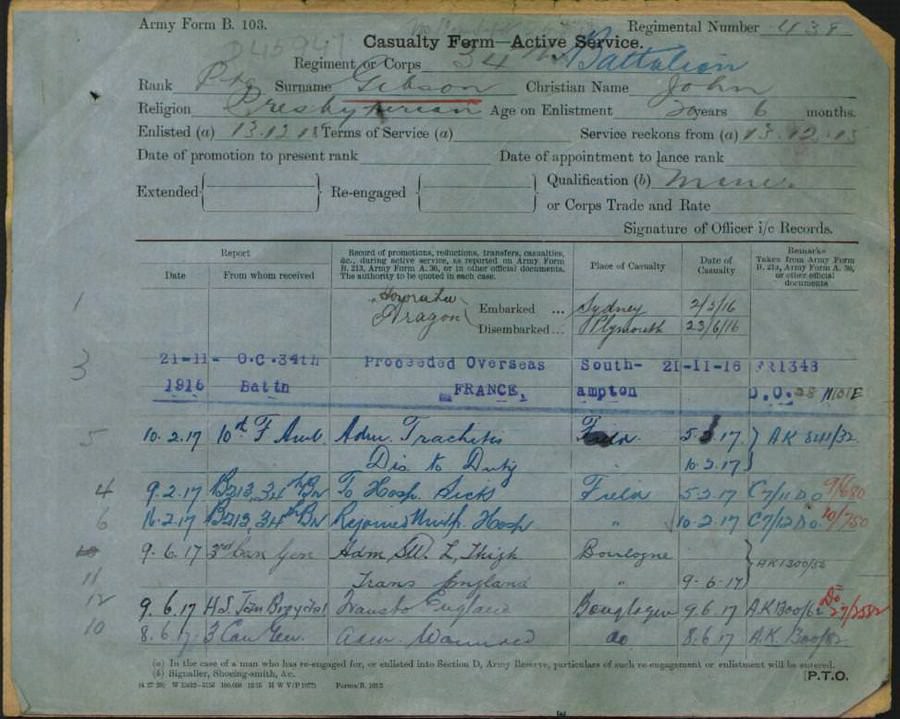 Army Form B. 103.
Regimental Number 438
Casualty Form—Active Service.
Regiment or Corps 34th Battalion
Rank Pte Surname Gibson Christian Name John
Religion Presbyterian Age on Enlistment 20 years 6 months.
Enlisted (a) 13.12.15 Terms of Service (a) Service reckons from (a) 13.12.15
Date of promotion to present rank Date of appointment to lance rank
Extended Re-engaged Qualification (b) Miner
or Corps Trade and Rate
Signature of Officer i/c Records.
Report
Date From whom received
Record of promotions, reductions, transfers, casualties, &c., during active service, as reported on Army Form B. 213, Army Form A. 36, or in other official documents. The authority to be quoted in each case.
Place of Casualty
Date of Casualty
Remarks
Taken from Army Form B. 213, Army Form A. 36, or other official documents
1 Embarked ... Sydney 2/5/16
Aragon Disembarked ... Plymouth 23/6/16
3 21-11- O.C.34th Proceeded Overseas South- 21-11-16 FR1348
1916 Battn FRANCE. ampton D.O.
5 10.2.17 10th F Amb. Adm. Trachitis Field 5.2.17 AK 841/32
Dis to Duty " 10.2.17
4 9.2.17 B213 34th Bn To Hosp. Sick Field 5.2.17 C7/11 DO 9/680
6 16.2.17 B213 34th Bn Rejoined Unit fr. Hosp " 10.2.17 C7/12 Do. 10/750
10 9.6.17 3rd Can Gen Adm SW. L, Thigh Boulogne AK1300/62
11 Trans England " 9-6-17
12 9.6.17 H.S. Jan Breydel Trans to England 9.6.17 A.K1300/62 Do 27/2582
10 8.6.17 3 Can Gen. Adm. Wounded do 8.6.17 A.K. 1300/62
(a) In the case of a man who has re-engaged for, or enlisted into Section D, Army Reserve, particulars of such re-engagement or enlistment will be entered.
(b) Signaller, Shoeing-smith, &c.
[P.T.O.